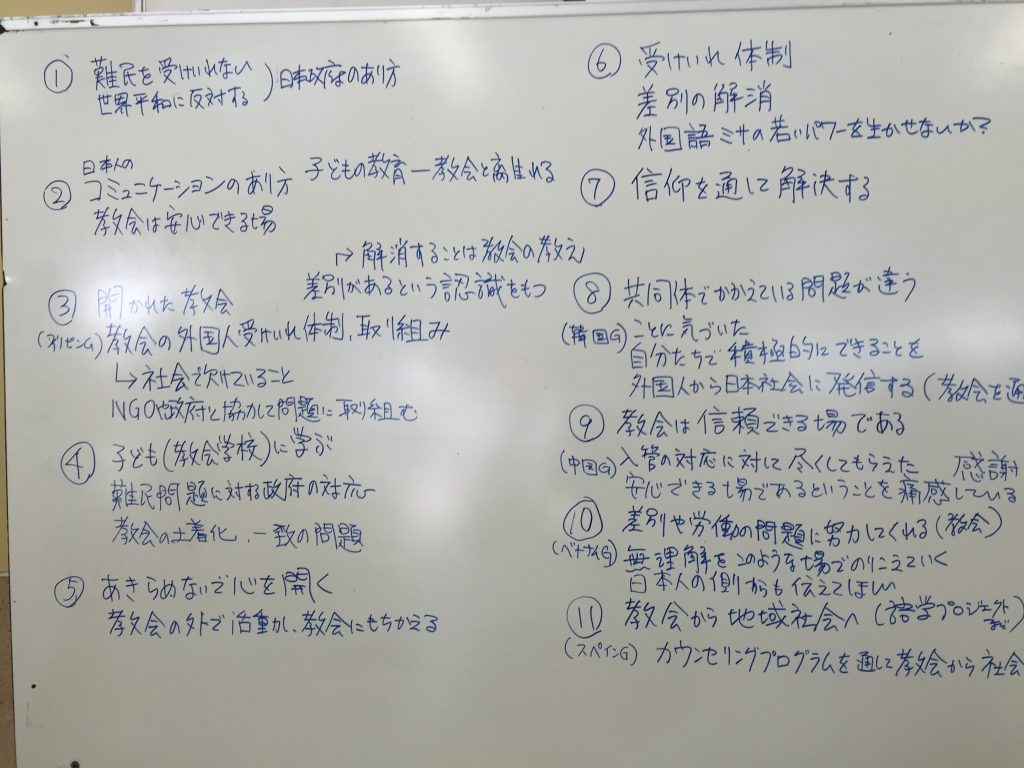 ① 難民を受けいれない
世界平和に反対する ) 日本政府のあり方
日本人の
② コミュニケーションのあり方 子どもの教育ー教会と離れる
教会は安心できる場
→解消することは教会の教え
差別があるという認識をもつ
③ 開かれた教会
教会の外国人受けいれ体制、取り組み
↳社会で欠けていること
NGOや政府と協力して問題に取り組む
④ 子ども(教会学校)に学ぶ
難民問題に対する政府の対応
教会の土着化、一致の問題
⑤ あきらめないで心を開く
教会の外で活動し、教会にもちかえる
⑥ 受けいれ体制
差別の解消
外国語ミサの若いパワーを生かせないか?
⑦ 信仰を通して解決する
⑧ 共同体でかかえている問題が違う
(韓国G) ことに気づいた
自分たちで積極的にできることを
外国人から日本社会に発信する(教会を通
⑨ 教会は信頼できる場である
(中国G) 入管の対応に対して尽くしてもらえた 感謝
安心できる場であるということを痛感している
⑩ 差別や労働の問題に努力してくれる(教会)
(ベトナムG) 無理解をこのような場でのりこえていく
日本人の側からも伝えてほしい
⑪ 教会から地域社会へ(語学プロジェクトなど)
(スペインG) カウンセリングプログラムを通して教会から社会